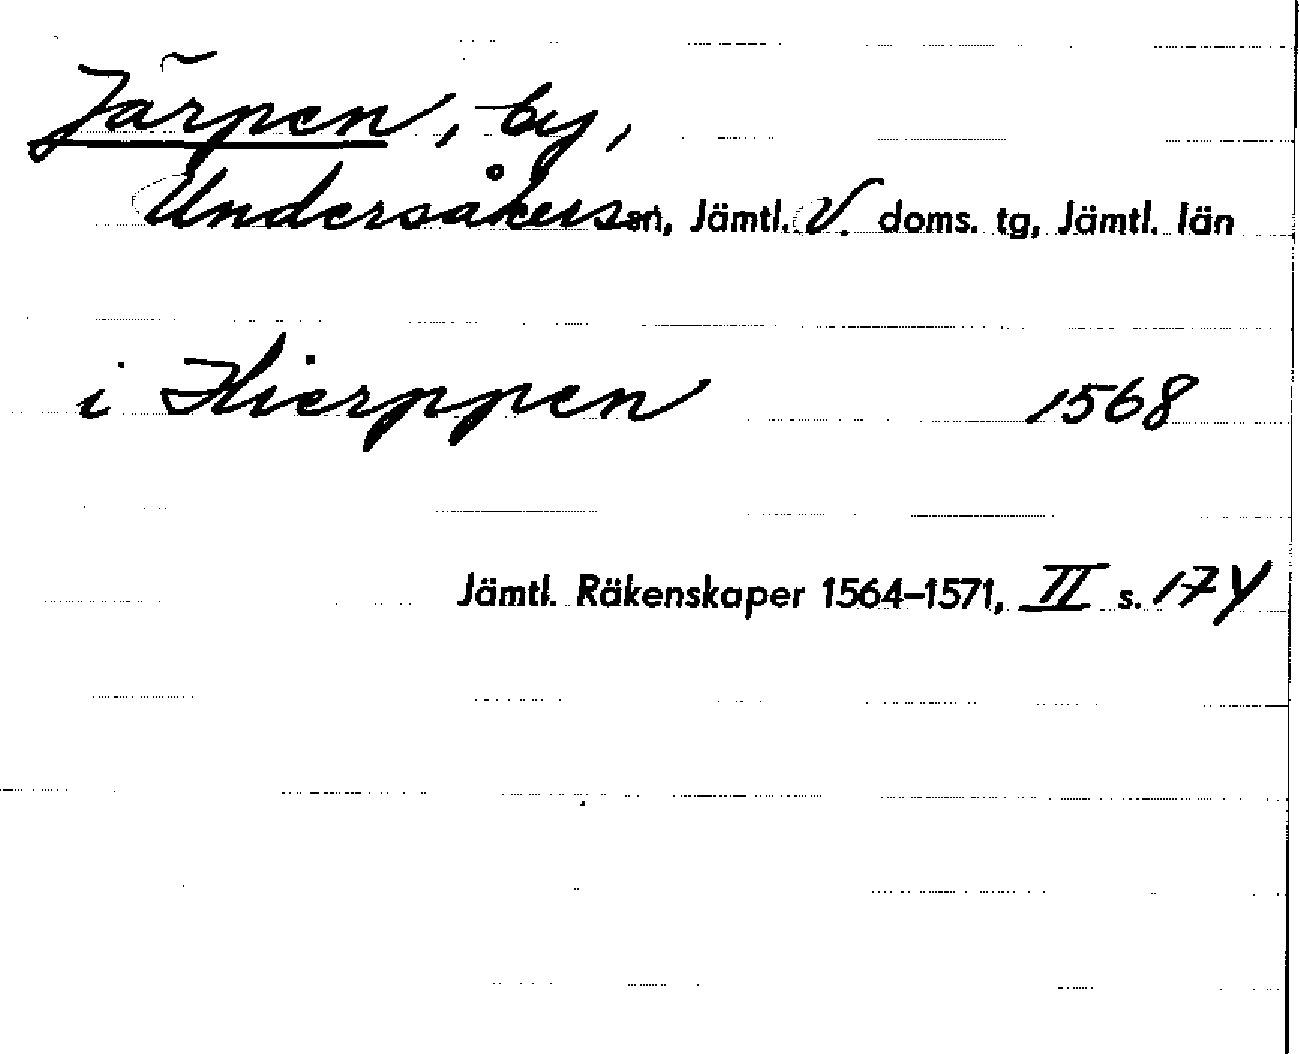 Järpen, by,
Undersåkers sn, Jämtl. V. doms. tg, Jämtl. län
i Hierppen 1568
Jämtl. Räkenskaper 1564–1571, II s. 174